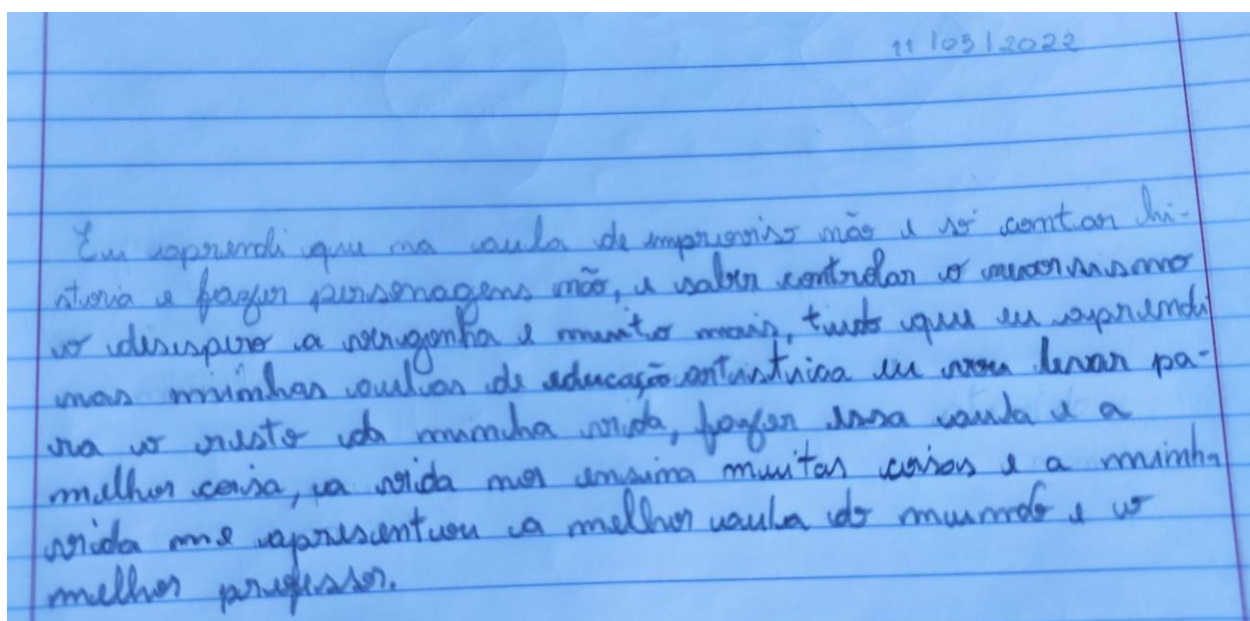 11/03/2022
Eu aprendi que na aula de improviso não e só contar hi-
storia e fazer personagens não, e saber controlar o nervosismo
o desespero a vergonha e muito mais, tudo que eu aprendi
nas minhas aulas de educação artistica eu vou levar pa-
ra o resto da minha vida, fazer essa aula e a
melhor coisa, a vida nos ensina muitas coisas e a minha
vida me apresentou a melhor aula do mundo e o
melhor professor.